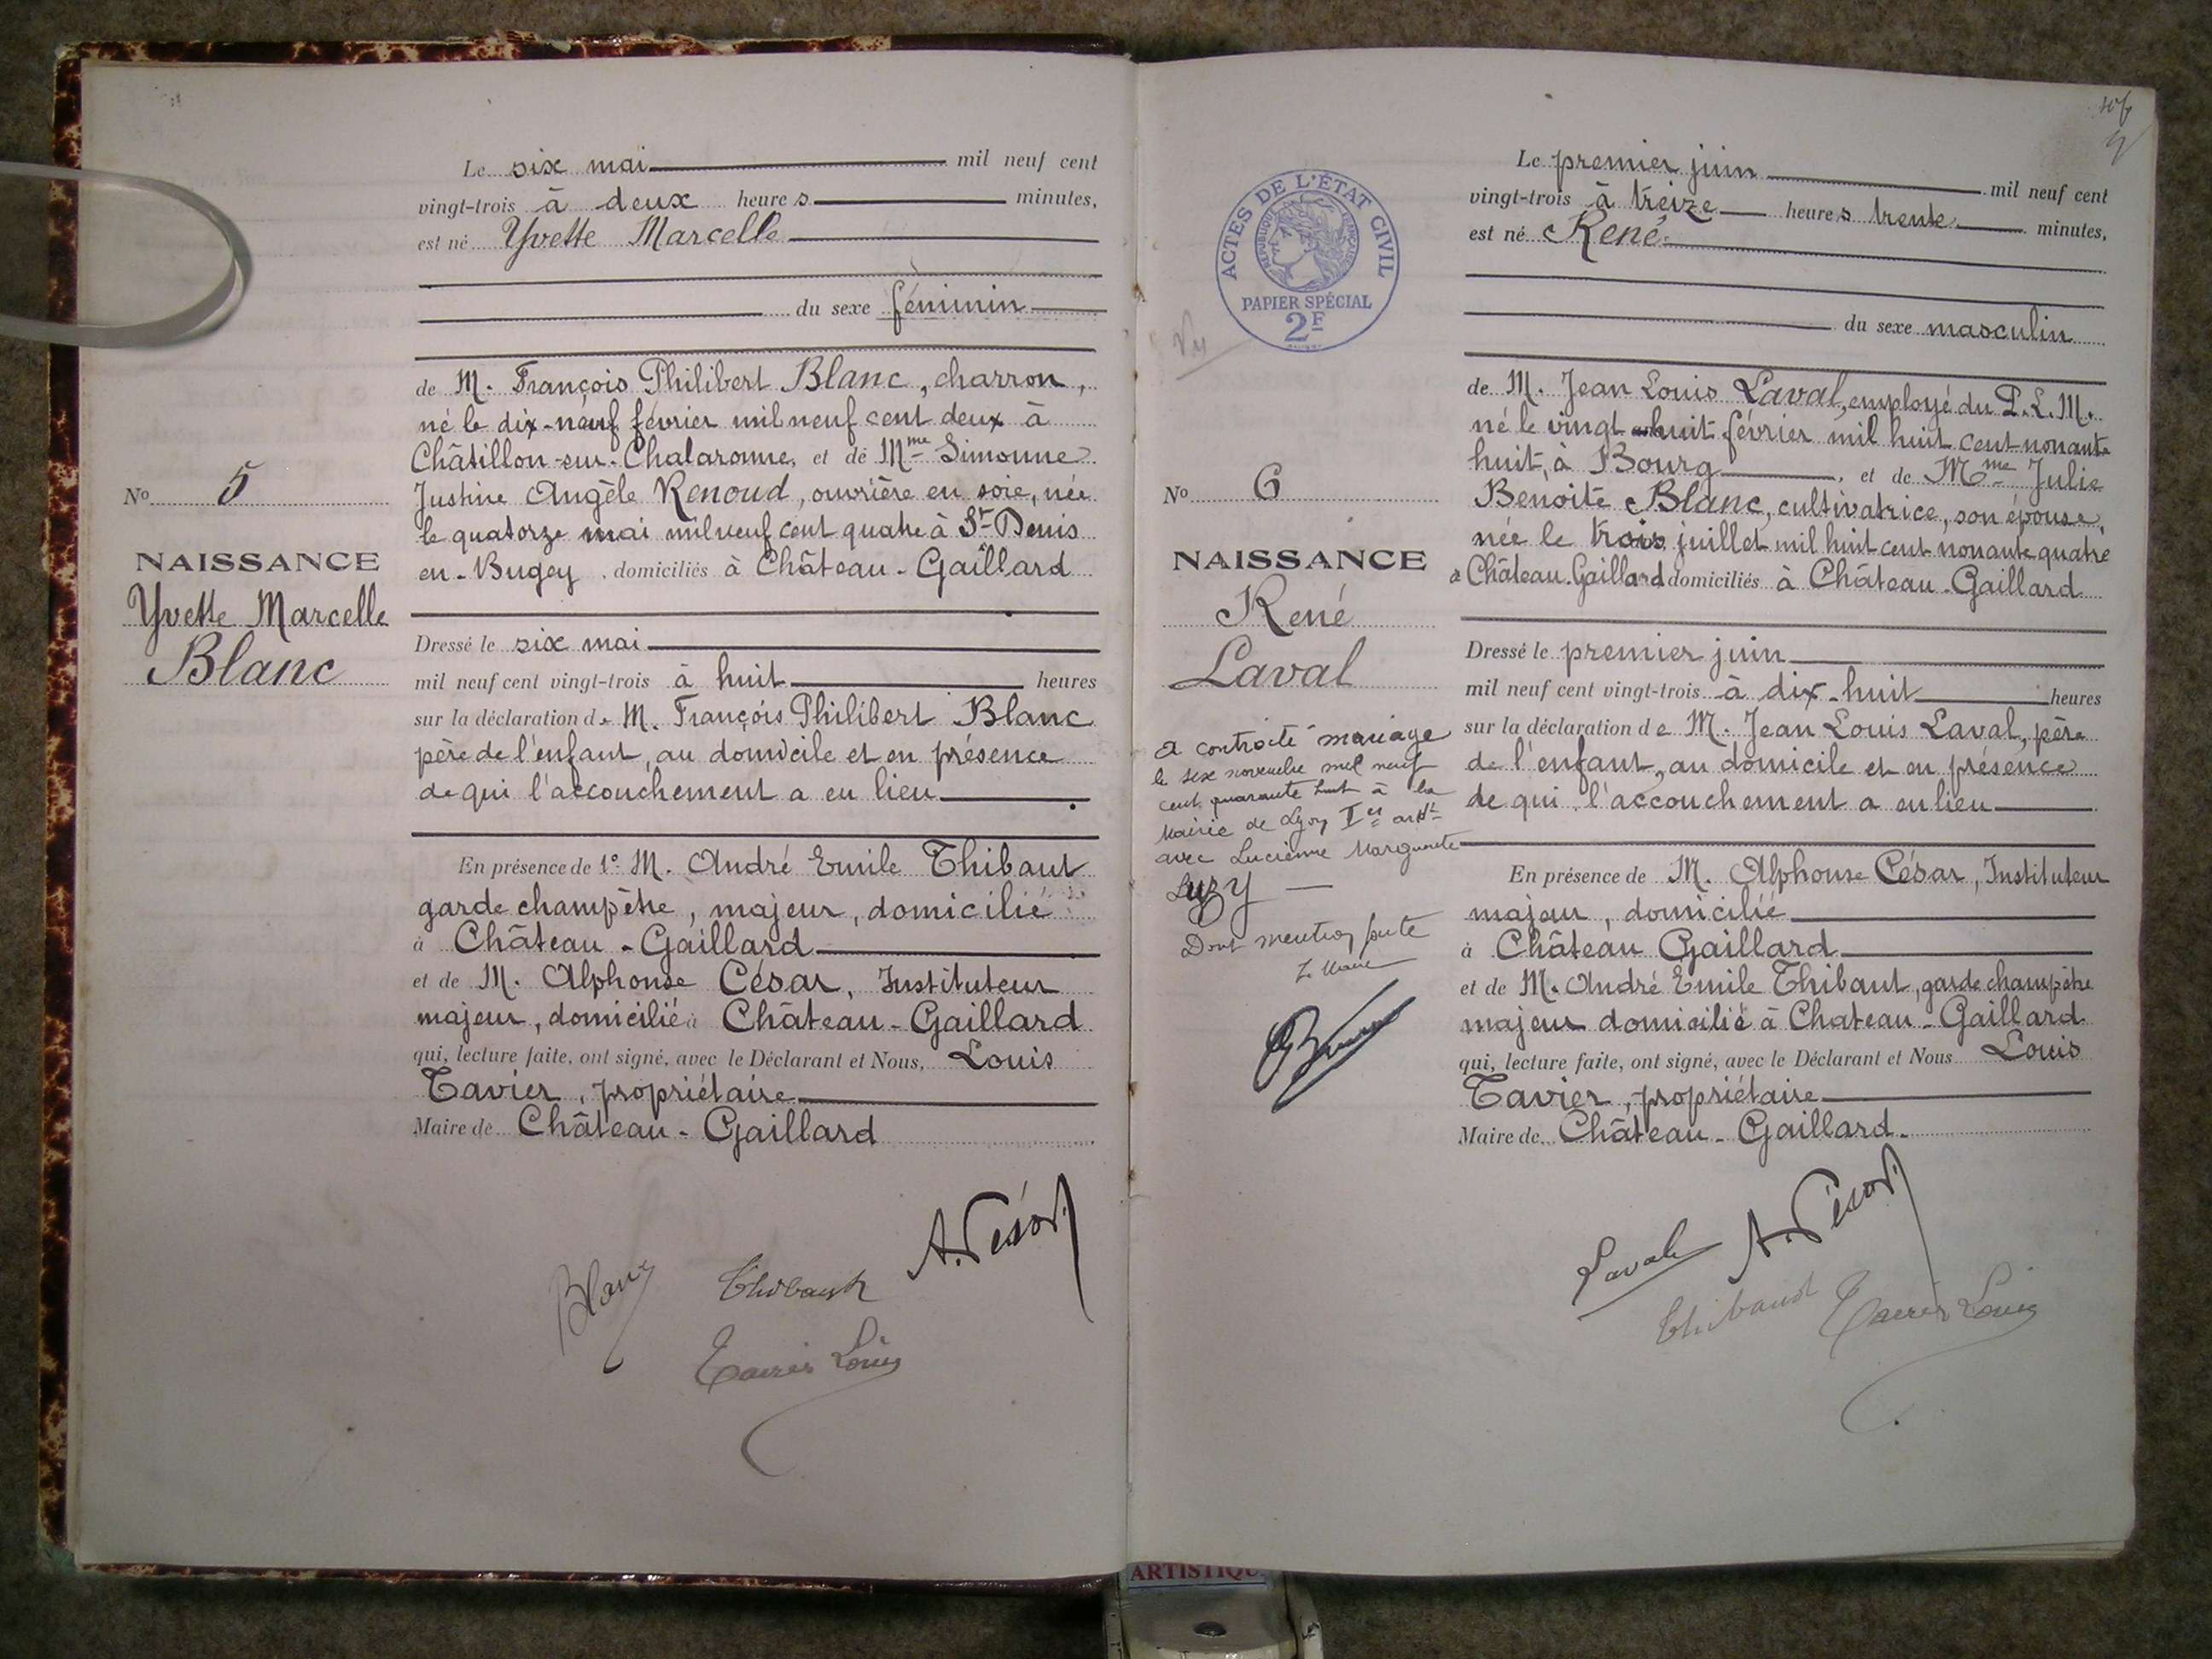 Le six mai mil neuf cent
vingt-trois à deux heures minutes,
est né Yvette Marcelle
du sexe féminin
de M. François Philibert Blanc, charron,
né le dix-neuf février mil neuf cent deux à
Châtillon-sur-Chalaronne, et de Mme Simonne
Justine Angèle Renoud, ouvrière en soie, née
le quatorze mai mil neuf cent quatre à St-Denis
en-Bugey, domiciliés à Château-Gaillard
No 5
NAISSANCE
Yvette Marcelle
Blanc
Dressé le six mai
mil neuf cent vingt-trois à huit heures
sur la déclaration de M. François Philibert Blanc
père de l'enfant, au domicile et en présence
de qui l'accouchement a eu lieu.
En présence de 1º M. André Emile Thibaut
garde champêtre, majeur, domicilié
à Château-Gaillard
et de M. Alphonse César, Instituteur
majeur, domicilié à Château-Gaillard
qui, lecture faite, ont signé, avec le Déclarant et Nous, Louis
Tavier, propriétaire
Maire de Château-Gaillard
Blanc Thibaut A. César
Tavier Louis
ACTES DE L'ÉTAT CIVIL
RÉPUBLIQUE FRANÇAISE
PAPIER SPÉCIAL
2F
Vu
Le premier juin mil neuf cent
vingt-trois à treize heures trente minutes,
est né René
du sexe masculin
de M. Jean Louis Laval, employé du P.L.M.
né le vingt huit février mil huit cent nonante
huit, à Bourg, et de Mme Julie
Benoite Blanc, cultivatrice, son épouse,
née le trois juillet mil huit cent nonante quatre
à Château-Gaillard domiciliés à Château-Gaillard
No 6
NAISSANCE
René
Laval
A contracté mariage
le six novembre mil neuf
cent quarante huit à la
Mairie de Lyon Ier ardt
avec Lucienne Marguerite
Luzy
Dont mention faite
Le Maire
Dressé le premier juin
mil neuf cent vingt-trois à dix-huit heures
sur la déclaration de M. Jean Louis Laval, père
de l'enfant, au domicile et en présence
de qui l'accouchement a eu lieu
En présence de M. Alphonse César, Instituteur
majeur, domicilié
à Château Gaillard
et de M. André Emile Thibaut, garde champêtre
majeur domicilié à Chateau-Gaillard
qui, lecture faite, ont signé, avec le Déclarant et Nous Louis
Tavier, propriétaire
Maire de Château-Gaillard.
Laval A. César
Thibaut Tavier Louis
ARTISTIQU